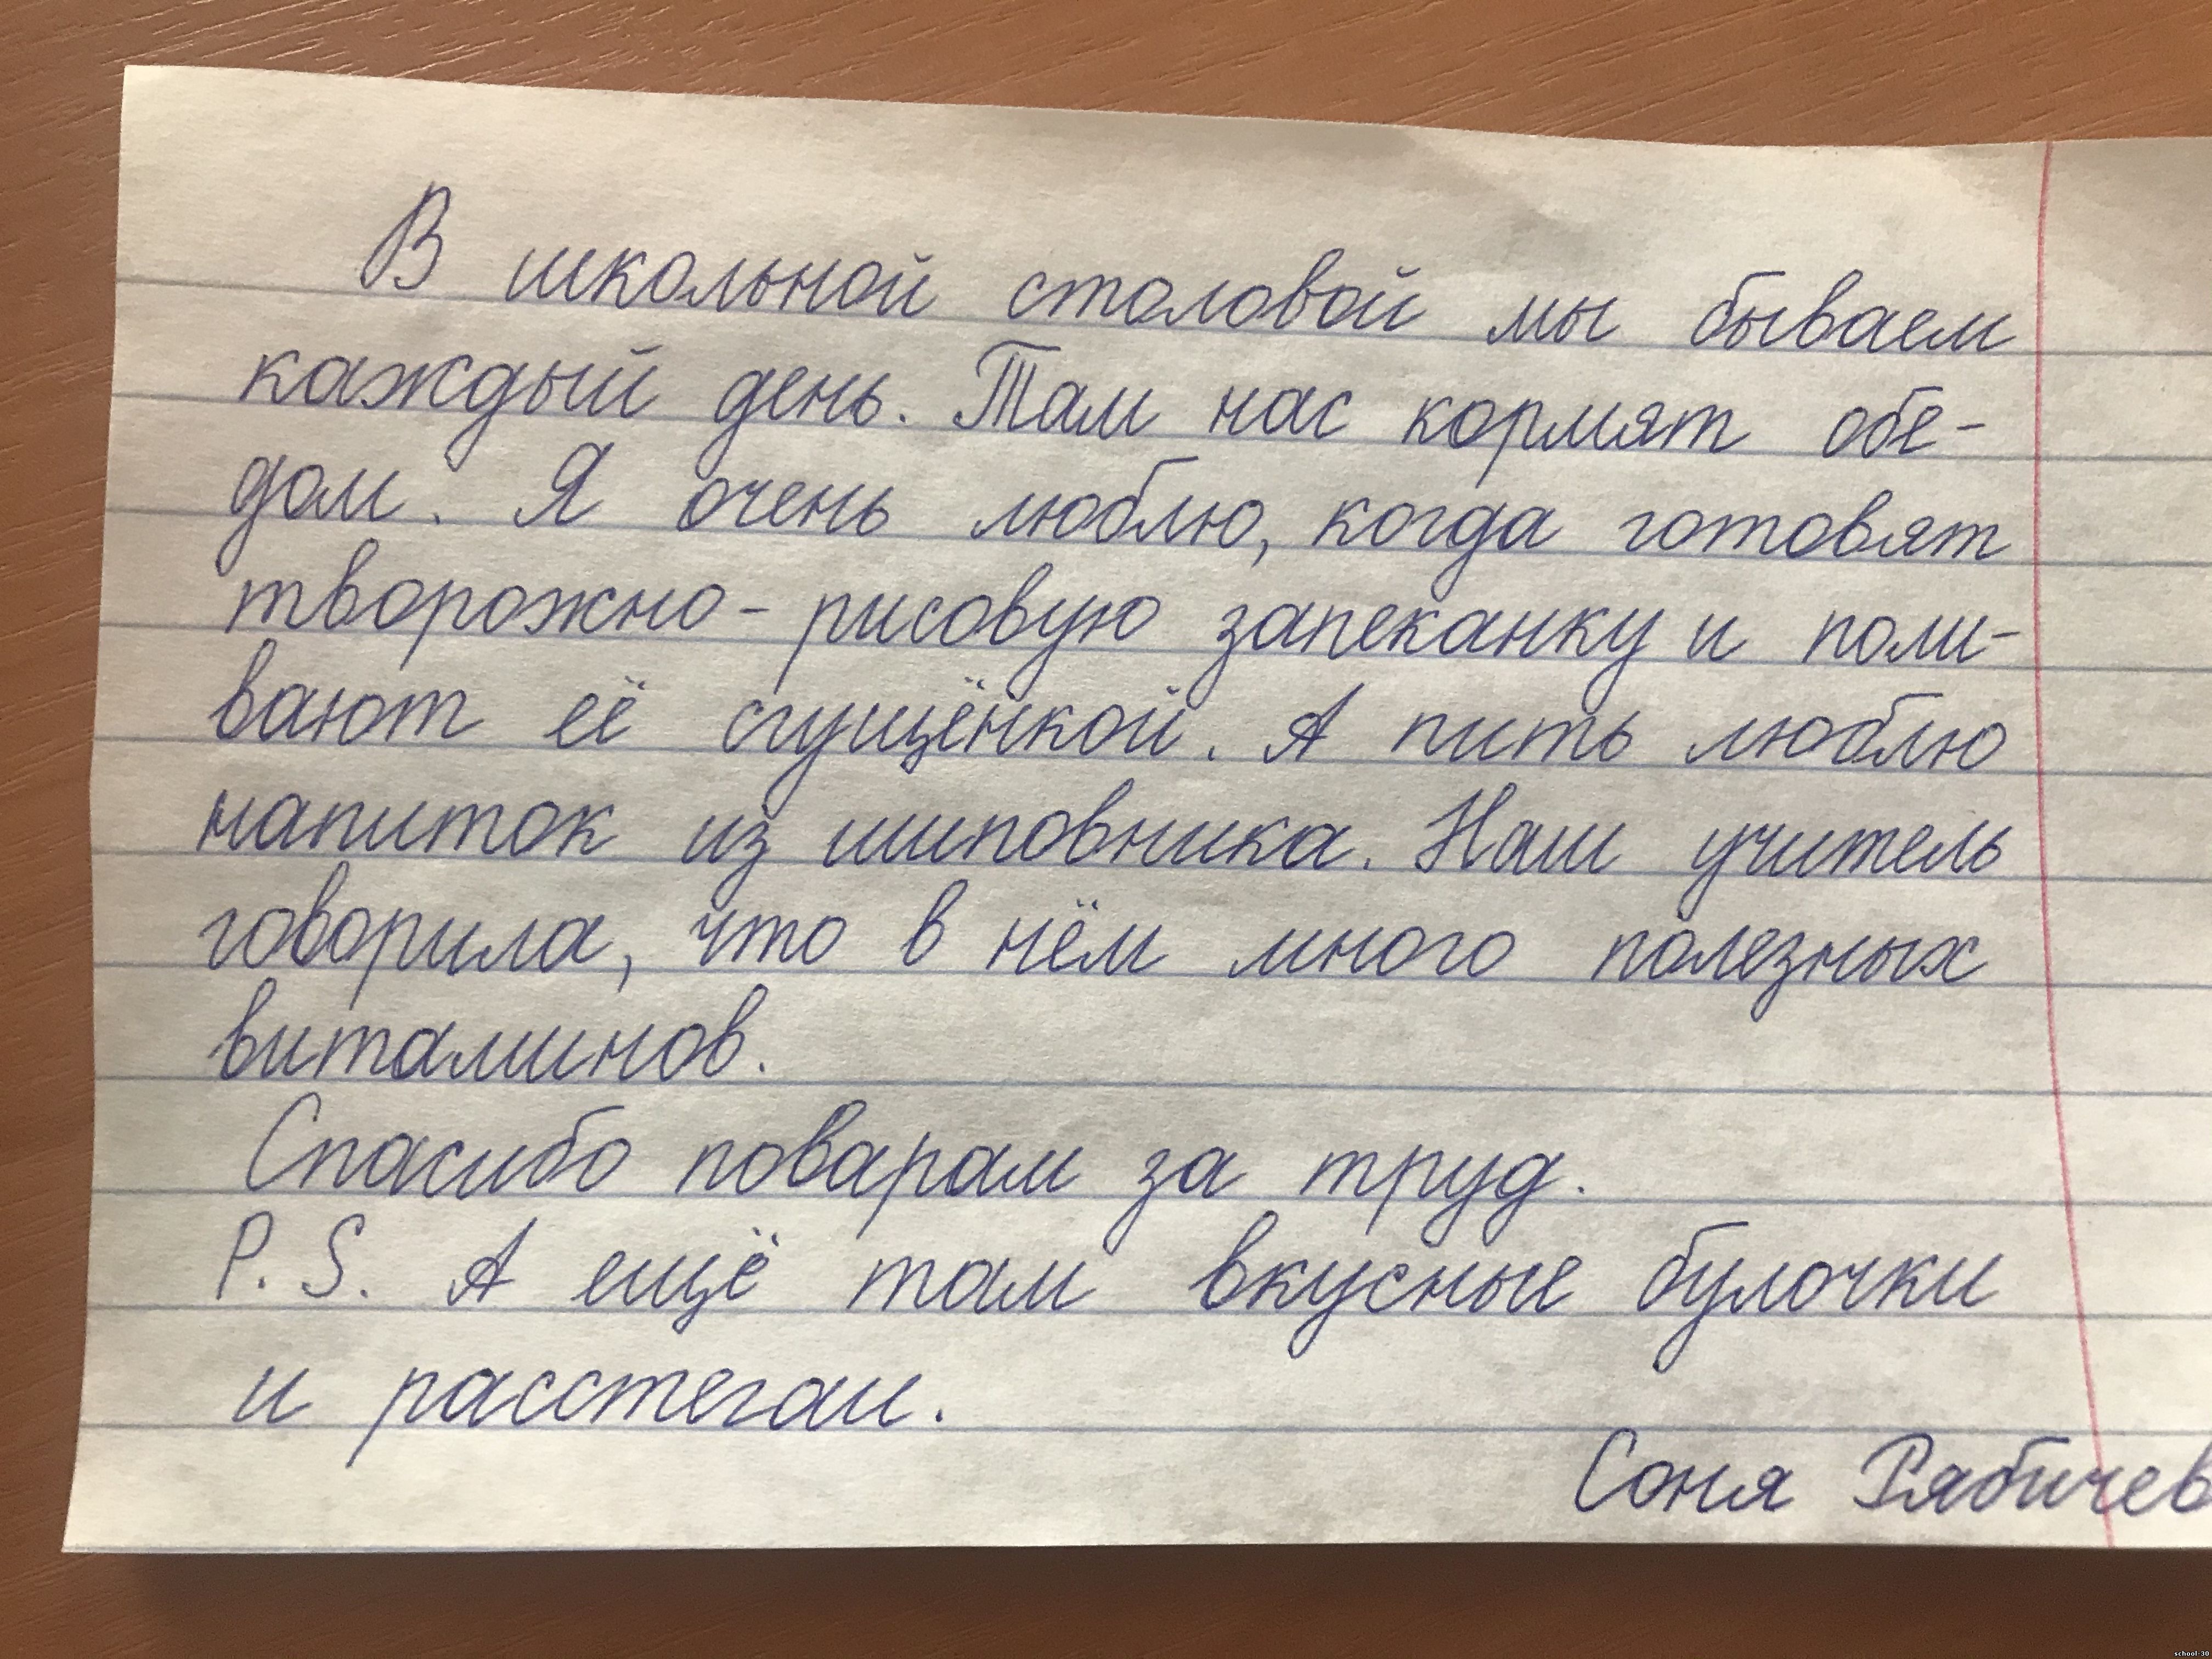 В школьной столовой мы бываем
каждый день. Там нас кормят обе-
дом. Я очень люблю, когда готовят
творожно-рисовую запеканку и поли-
вают её сгущёнкой. А пить люблю
напиток из шиповника. Наш учитель
говорила, что в нём много полезных
витаминов.
Спасибо поварам за труд.
P. S. А ещё там вкусные булочки
и расстегаи.
Соня Рябичев
school-30